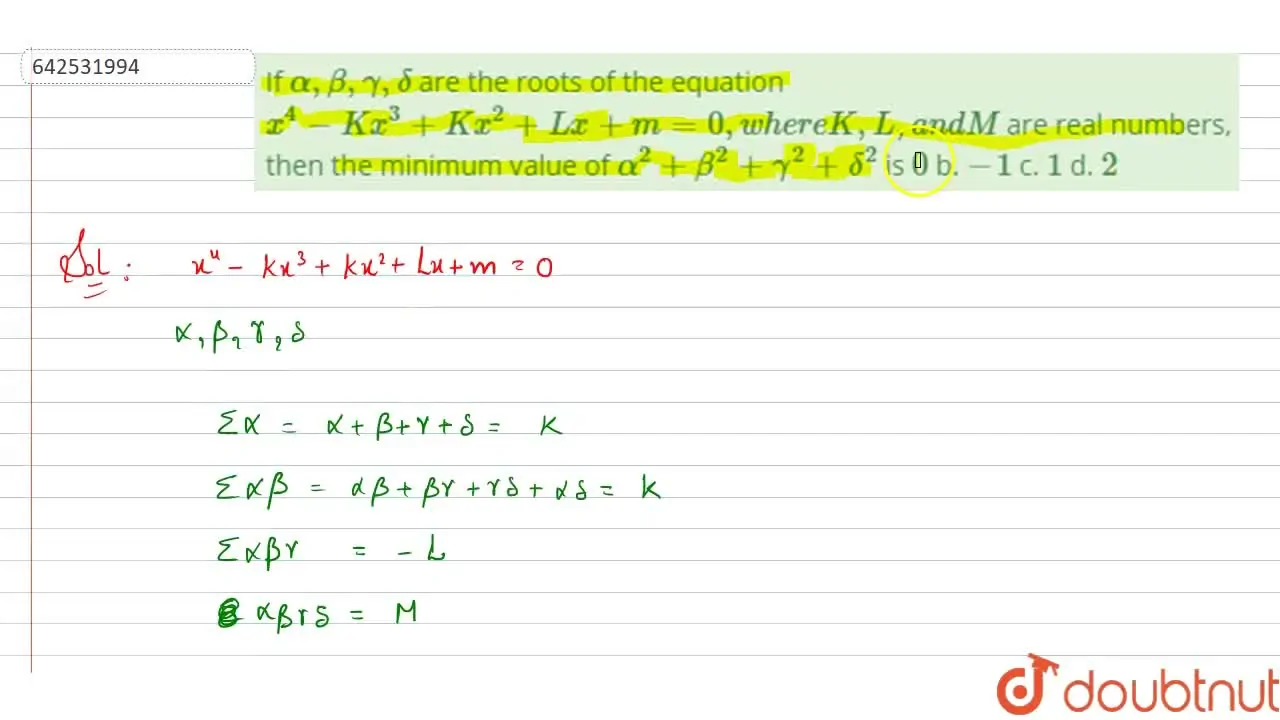 642531994
If α, β, γ, δ are the roots of the equation
x⁴ − Kx³ + Kx² + Lx + m = 0, whereK, L, andM are real numbers,
then the minimum value of α² + β² + γ² + δ² is 0 b. −1 c. 1 d. 2
Sol : x⁴ − kx³ + kx² + Lx + m = 0
α, β, γ, δ
Σα = α + β + γ + δ = K
Σαβ = αβ + βγ + γδ + αδ = K
Σαβγ = − L
αβγδ = M
doubtnut